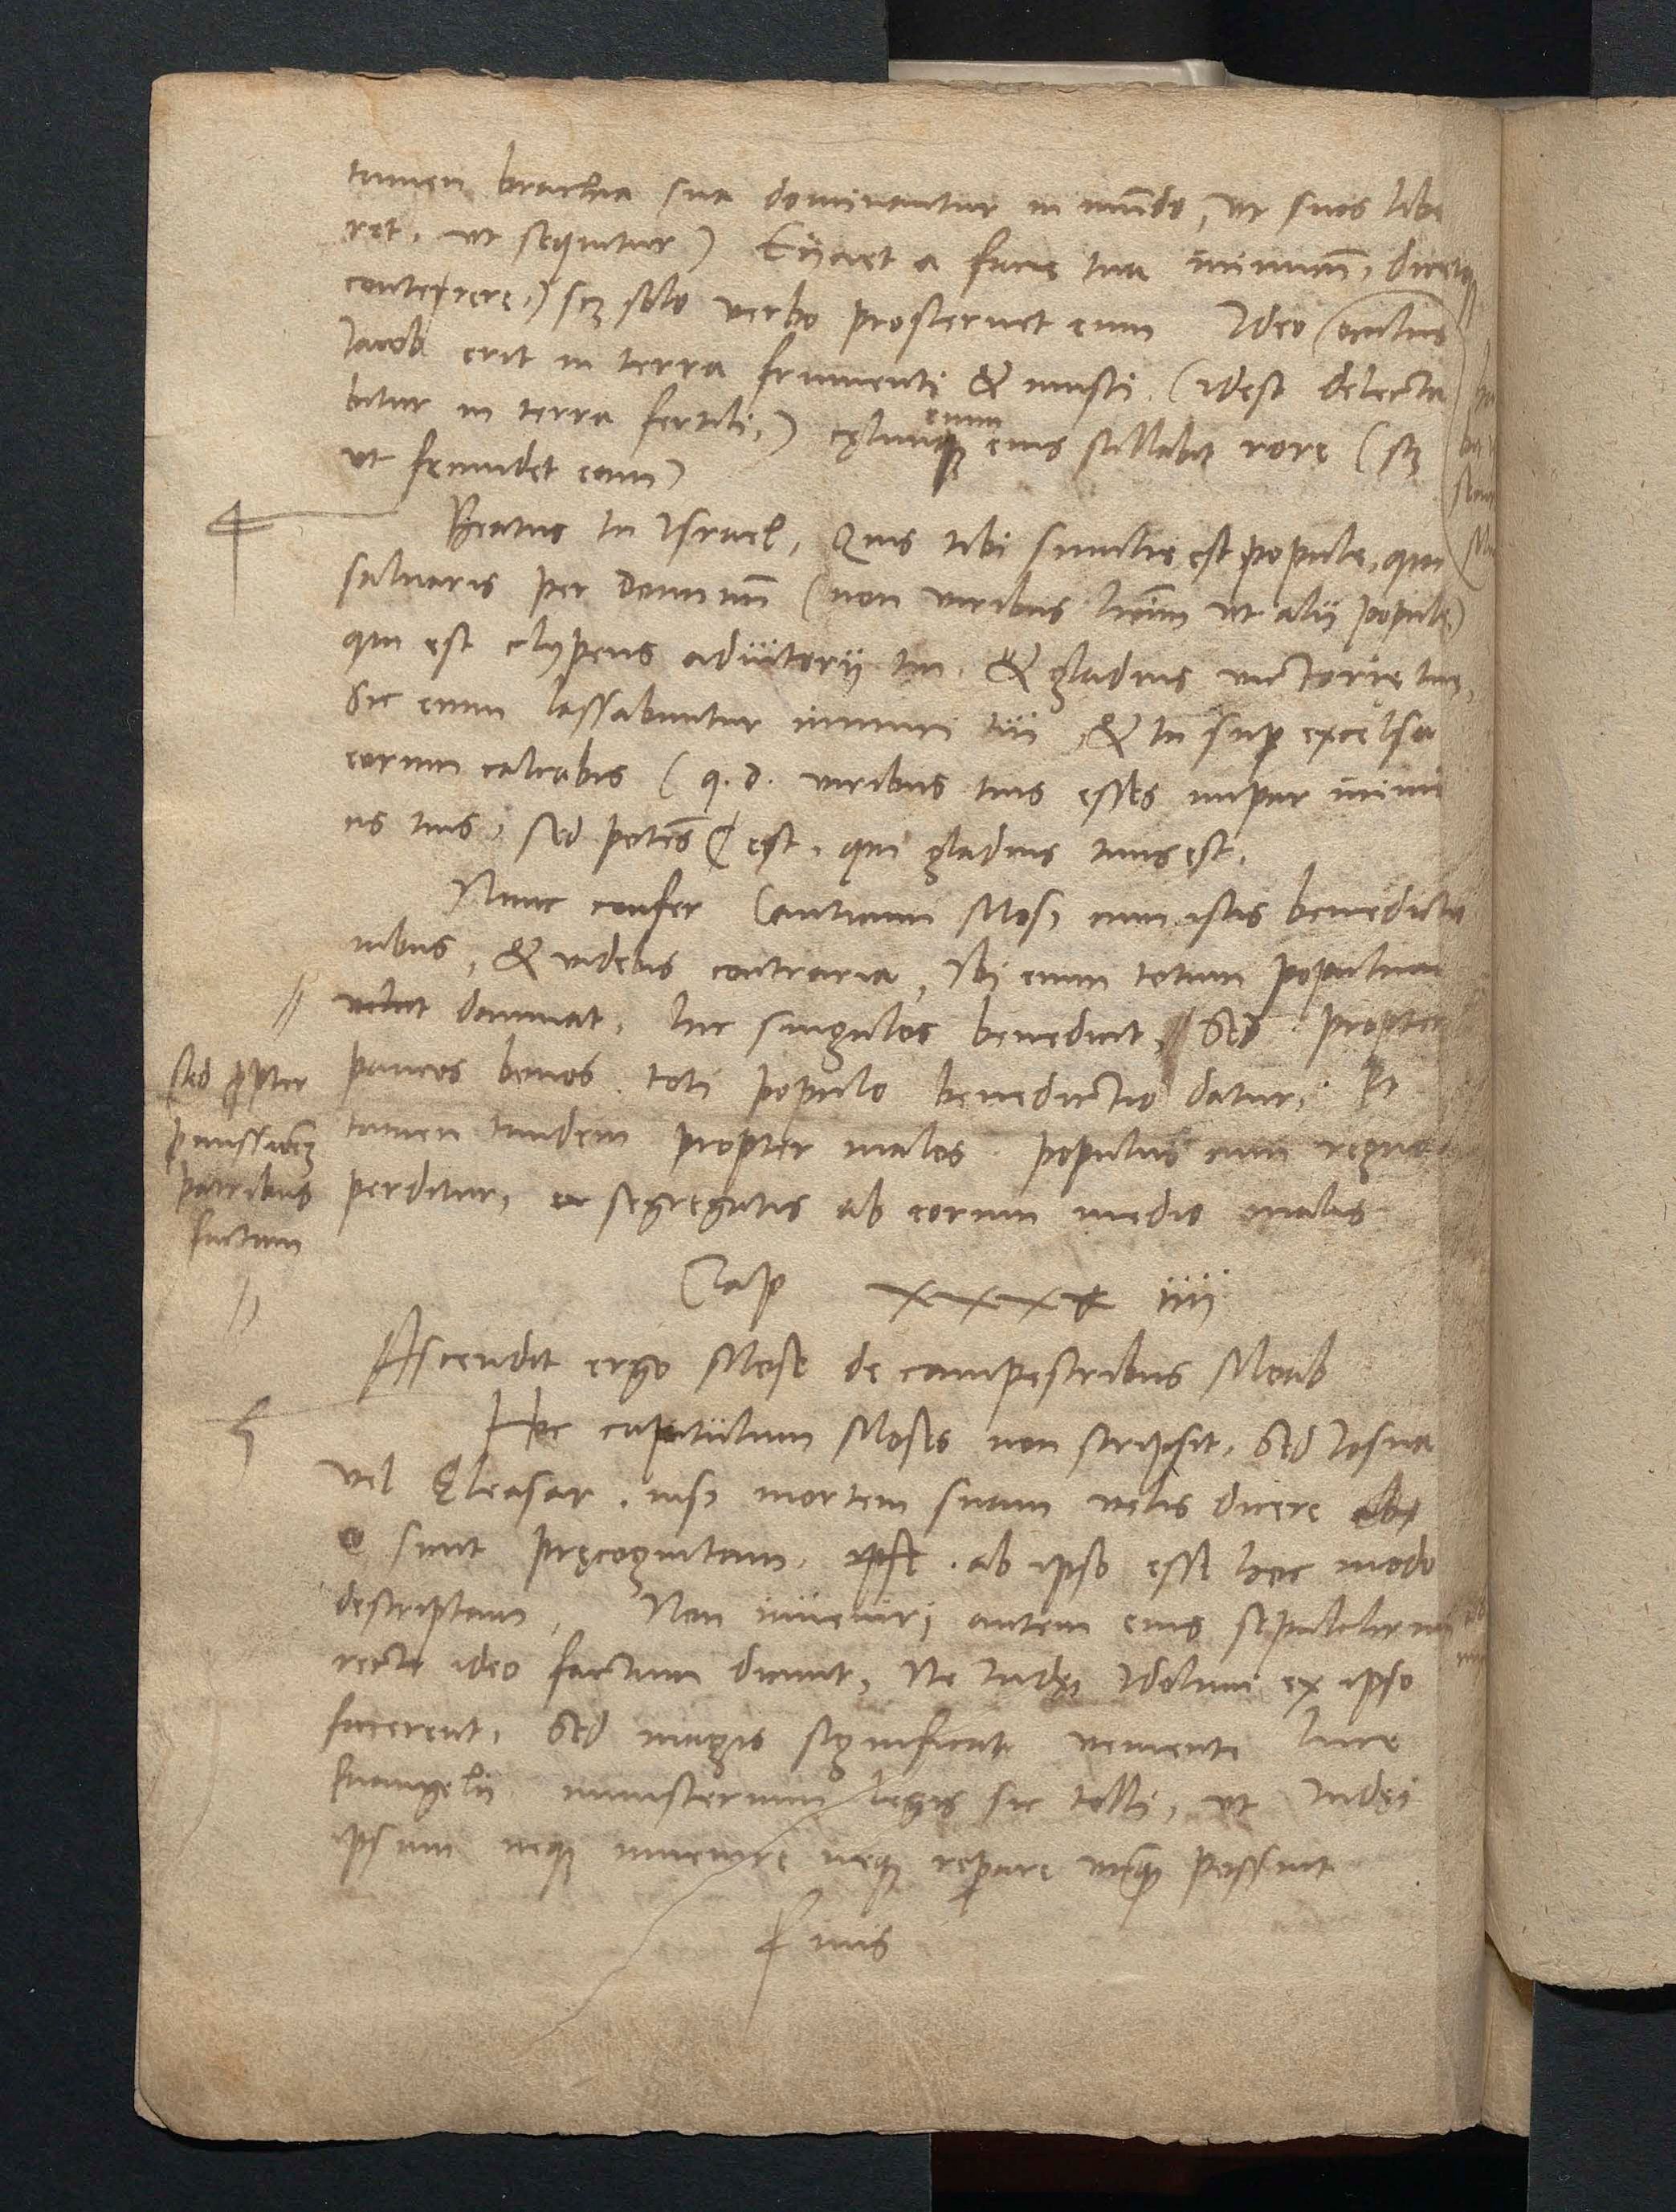 tamen brachia sua dominantur in mũdo, ut suos libe
ret, ut sequitur) Eijciet a facie tua inimicũ, dicetq
conterere,) scz solo verbo prosternet eum Ideo (oculus
Iacob erit in terra frumenti & musti. (idest delecta
bitur in terra fertili,) cęlum enim eius stillabit rore (scz
ut fęcundet eam)
Beatus tu Israel, Quis tibi similis est popule, qui
saluaris per Dominũ (non viribus tuis ut alij populi)
qui est clypeus adiutorij tui. & gladius victorię tuę,
Sic enim lassabuntur inimici tui, & tu sup excelsa
eorum calcabis (q. d. viribus tuis esses impar inimi
cis tuis, sed potẽs est, qui gladius tuus est.
Nunc confer Canticum Mosi cum istis benedictio
nibus, & videbis contraria, Ibi enim totum populum
velut damnat, hic singulos benedicit, // Sed propter
paucos bonos toti populo benedictio datur, Et
tamen tandem propter malos populus cum regno
perditur, segregatis ab eorum medio malis
// sed ꝓpter
ꝓmissionẽ
patribus
factam
//
Cap xxxiiij
Ascendit ergo Mose de campestribus Moab
Hoc capitulum Moses non scripsit, Sed Iosua
vel Eleasar, nisi mortem suam velis dicere ab
eo sicut pręcognitam, ab ipso esse hoc modo
descriptam, Non inueniri autem eius sepulchrum
recte ideo factum dicunt, Ne Iudęi Idolum ex ipso
facerent, Sed magis significat veniente luce
Euangelij ministerium legis sic tolli, ut Iudęi
ipsum neq inuenire neq reparare unq possint
Finis